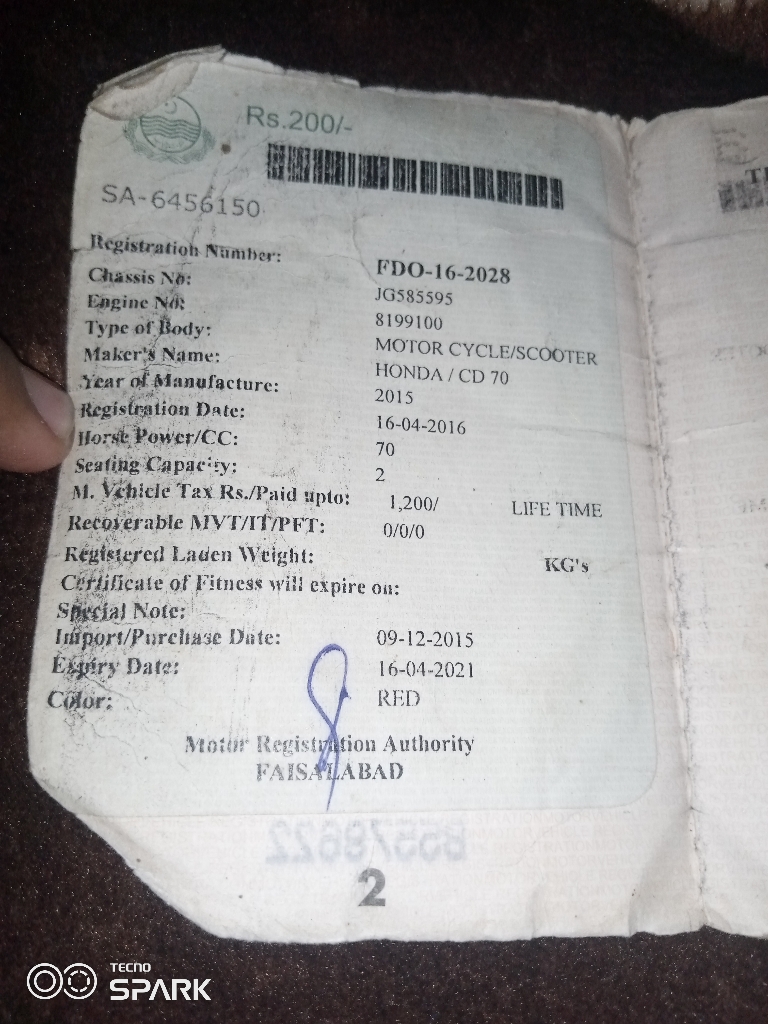 Rs.200/-
SA-6456150
Registration Number: FDO-16-2028
Chassis No: JG585595
Engine No: 8199100
Type of Body: MOTOR CYCLE/SCOOTER
Maker's Name: HONDA / CD 70
Year of Manufacture: 2015
Registration Date: 16-04-2016
Horse Power/CC: 70
Seating Capacity: 2
M. Vehicle Tax Rs./Paid upto: 1,200/ LIFE TIME
Recoverable MVT/IT/PFT: 0/0/0
Registered Laden Weight: KG's
Certificate of Fitness will expire on:
Special Note:
Import/Purchase Date: 09-12-2015
Expiry Date: 16-04-2021
Color: RED
Motor Registration Authority
FAISALABAD
B5578622
2
TECNO
SPARK